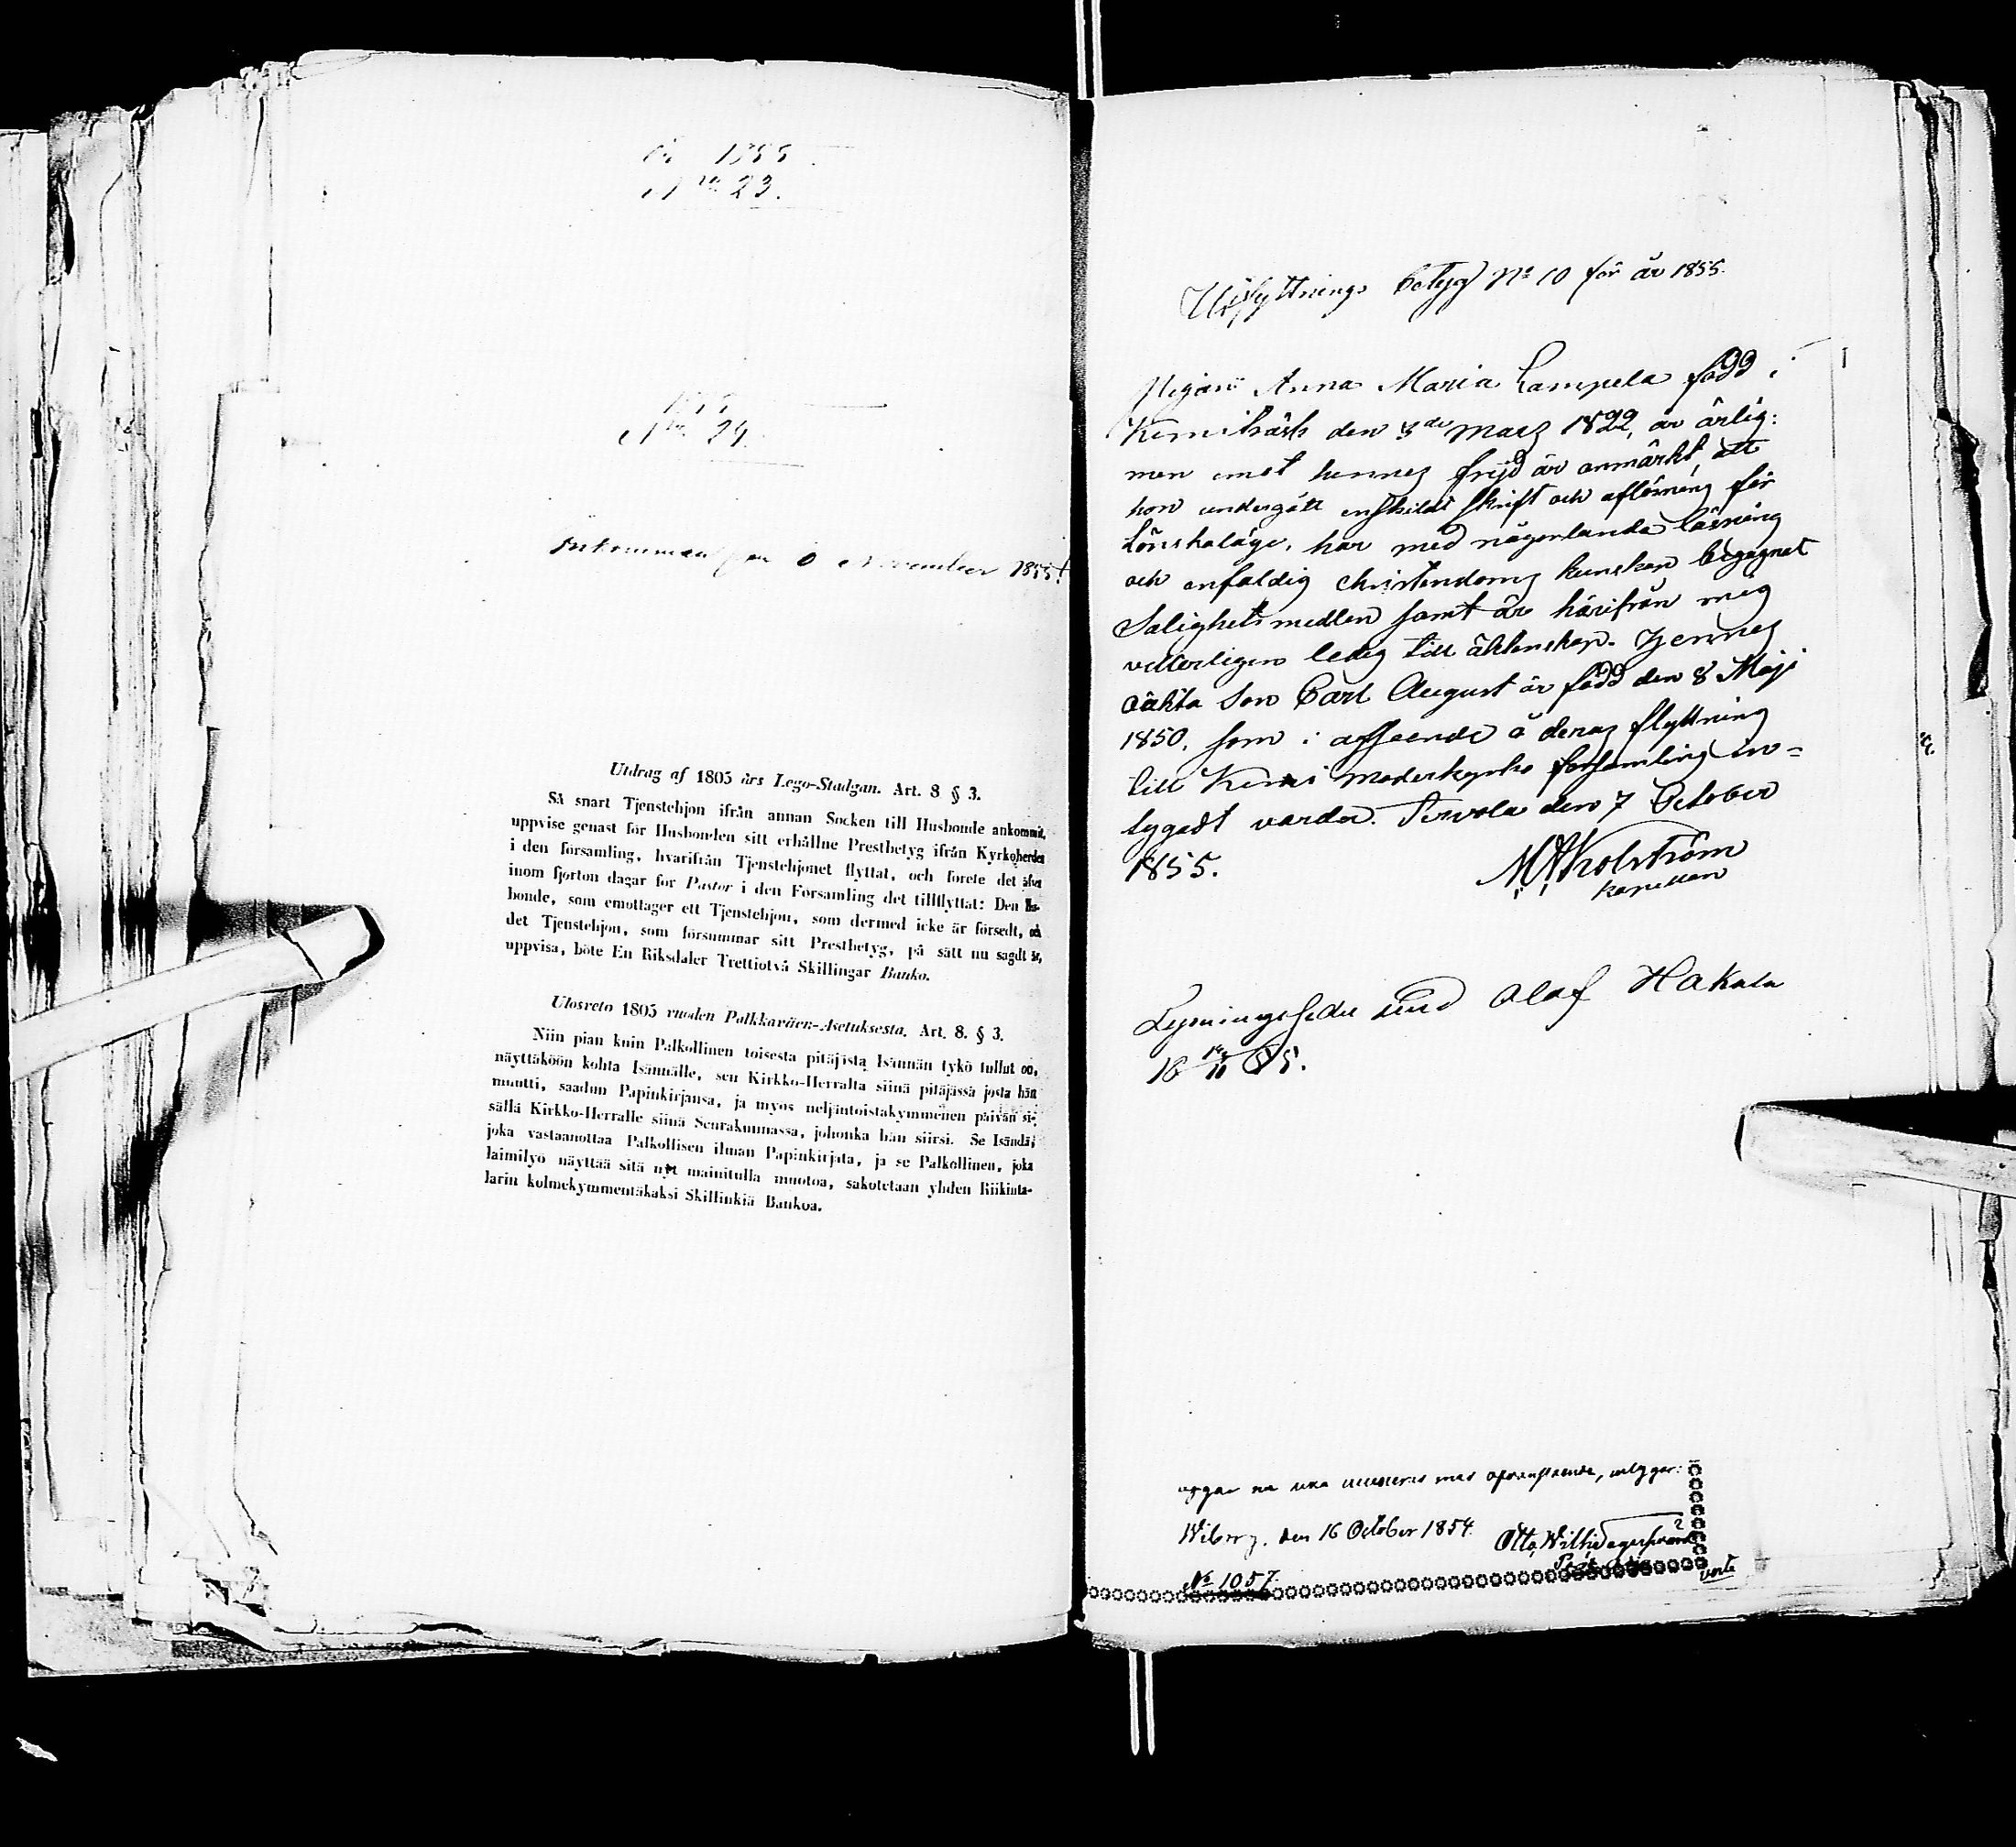 År 1855
N<sup>ro</sup> 23.
1855
N<sup>ro</sup> 24.
Inkommen den November 1855.
Utdrag af 1805 års Lego-Stadgan. Art. 8 § 3.
Så snart Tjenstehjon ifrån annan Socken till Husbonde ankommit,
uppvise genast för Husbonden sitt erhållne Prestbetyg ifrån Kyrkoherden
i den församling, hvarifrån Tjenstehjonet flyttat, och förete det äfven
inom fjorton dagar för Pastor i den Församling det tillflyttat: Den Hus-
bonde, som emottager ett Tjenstehjon, som dermed icke är försedt, och
det Tjenstehjon, som försummar sitt Prestbetyg, på sätt nu sagdt är,
uppvisa, böte En Riksdaler Trettiotvå Skillingar Banko.
Ulosveto 1805 vuoden Palkkaväen-Asetuksesta. Art. 8. § 3.
Niin pian kuin Palkollinen toisesta pitäjistä Isännän tykö tullut on,
näyttäköön kohta Isännälle, sen Kirkko-Herralta siinä pitäjässä josta hän
muutti, saadun Papinkirjansa, ja myös neljäntoistakymmenen päivän si-
sällä Kirkko-Herralle siinä Seurakunnassa, johonka hän siirsi. Se Isändä,
joka vastaanottaa Palkollisen ilman Papinkirjata, ja se Palkollinen, joka
laimilyö näyttää sitä nyt mainitulla muotoa, sakotetaan yhden Riikinta-
larin kolmekymmentäkaksi Skillinkiä Bankoa.
Utflyttnings betyg N<sup>o</sup> 10 för år 1855.
Pigan Anna Maria Lampela född i
Kemiträsk den 3<sup>de</sup> Marz 1822, är ärlig:
men emot hennes frejd är anmärkt att
hon undergått enskildt skrift och aflösning för
Lönskaläge, har med någorlunda läsning
och enfaldig christendoms kunskap begagnat
Salighetsmedlen samt är härifrån mig
vetterligen ledig till äktenskap. Hennes
oäkta Son Carl August är född den 8 Maji
1850, som i afseende å deras flyttning
till Kemi moderkyrko församling in=
tygadt varder. Tervola den 7 October
1855.
Kapellan
Lysningssedel med Olof Hakala
18 14/10 55.
Wiborg, den 16 October 1854.
Otto Wilh
N<sup>o</sup> 1057.
verte